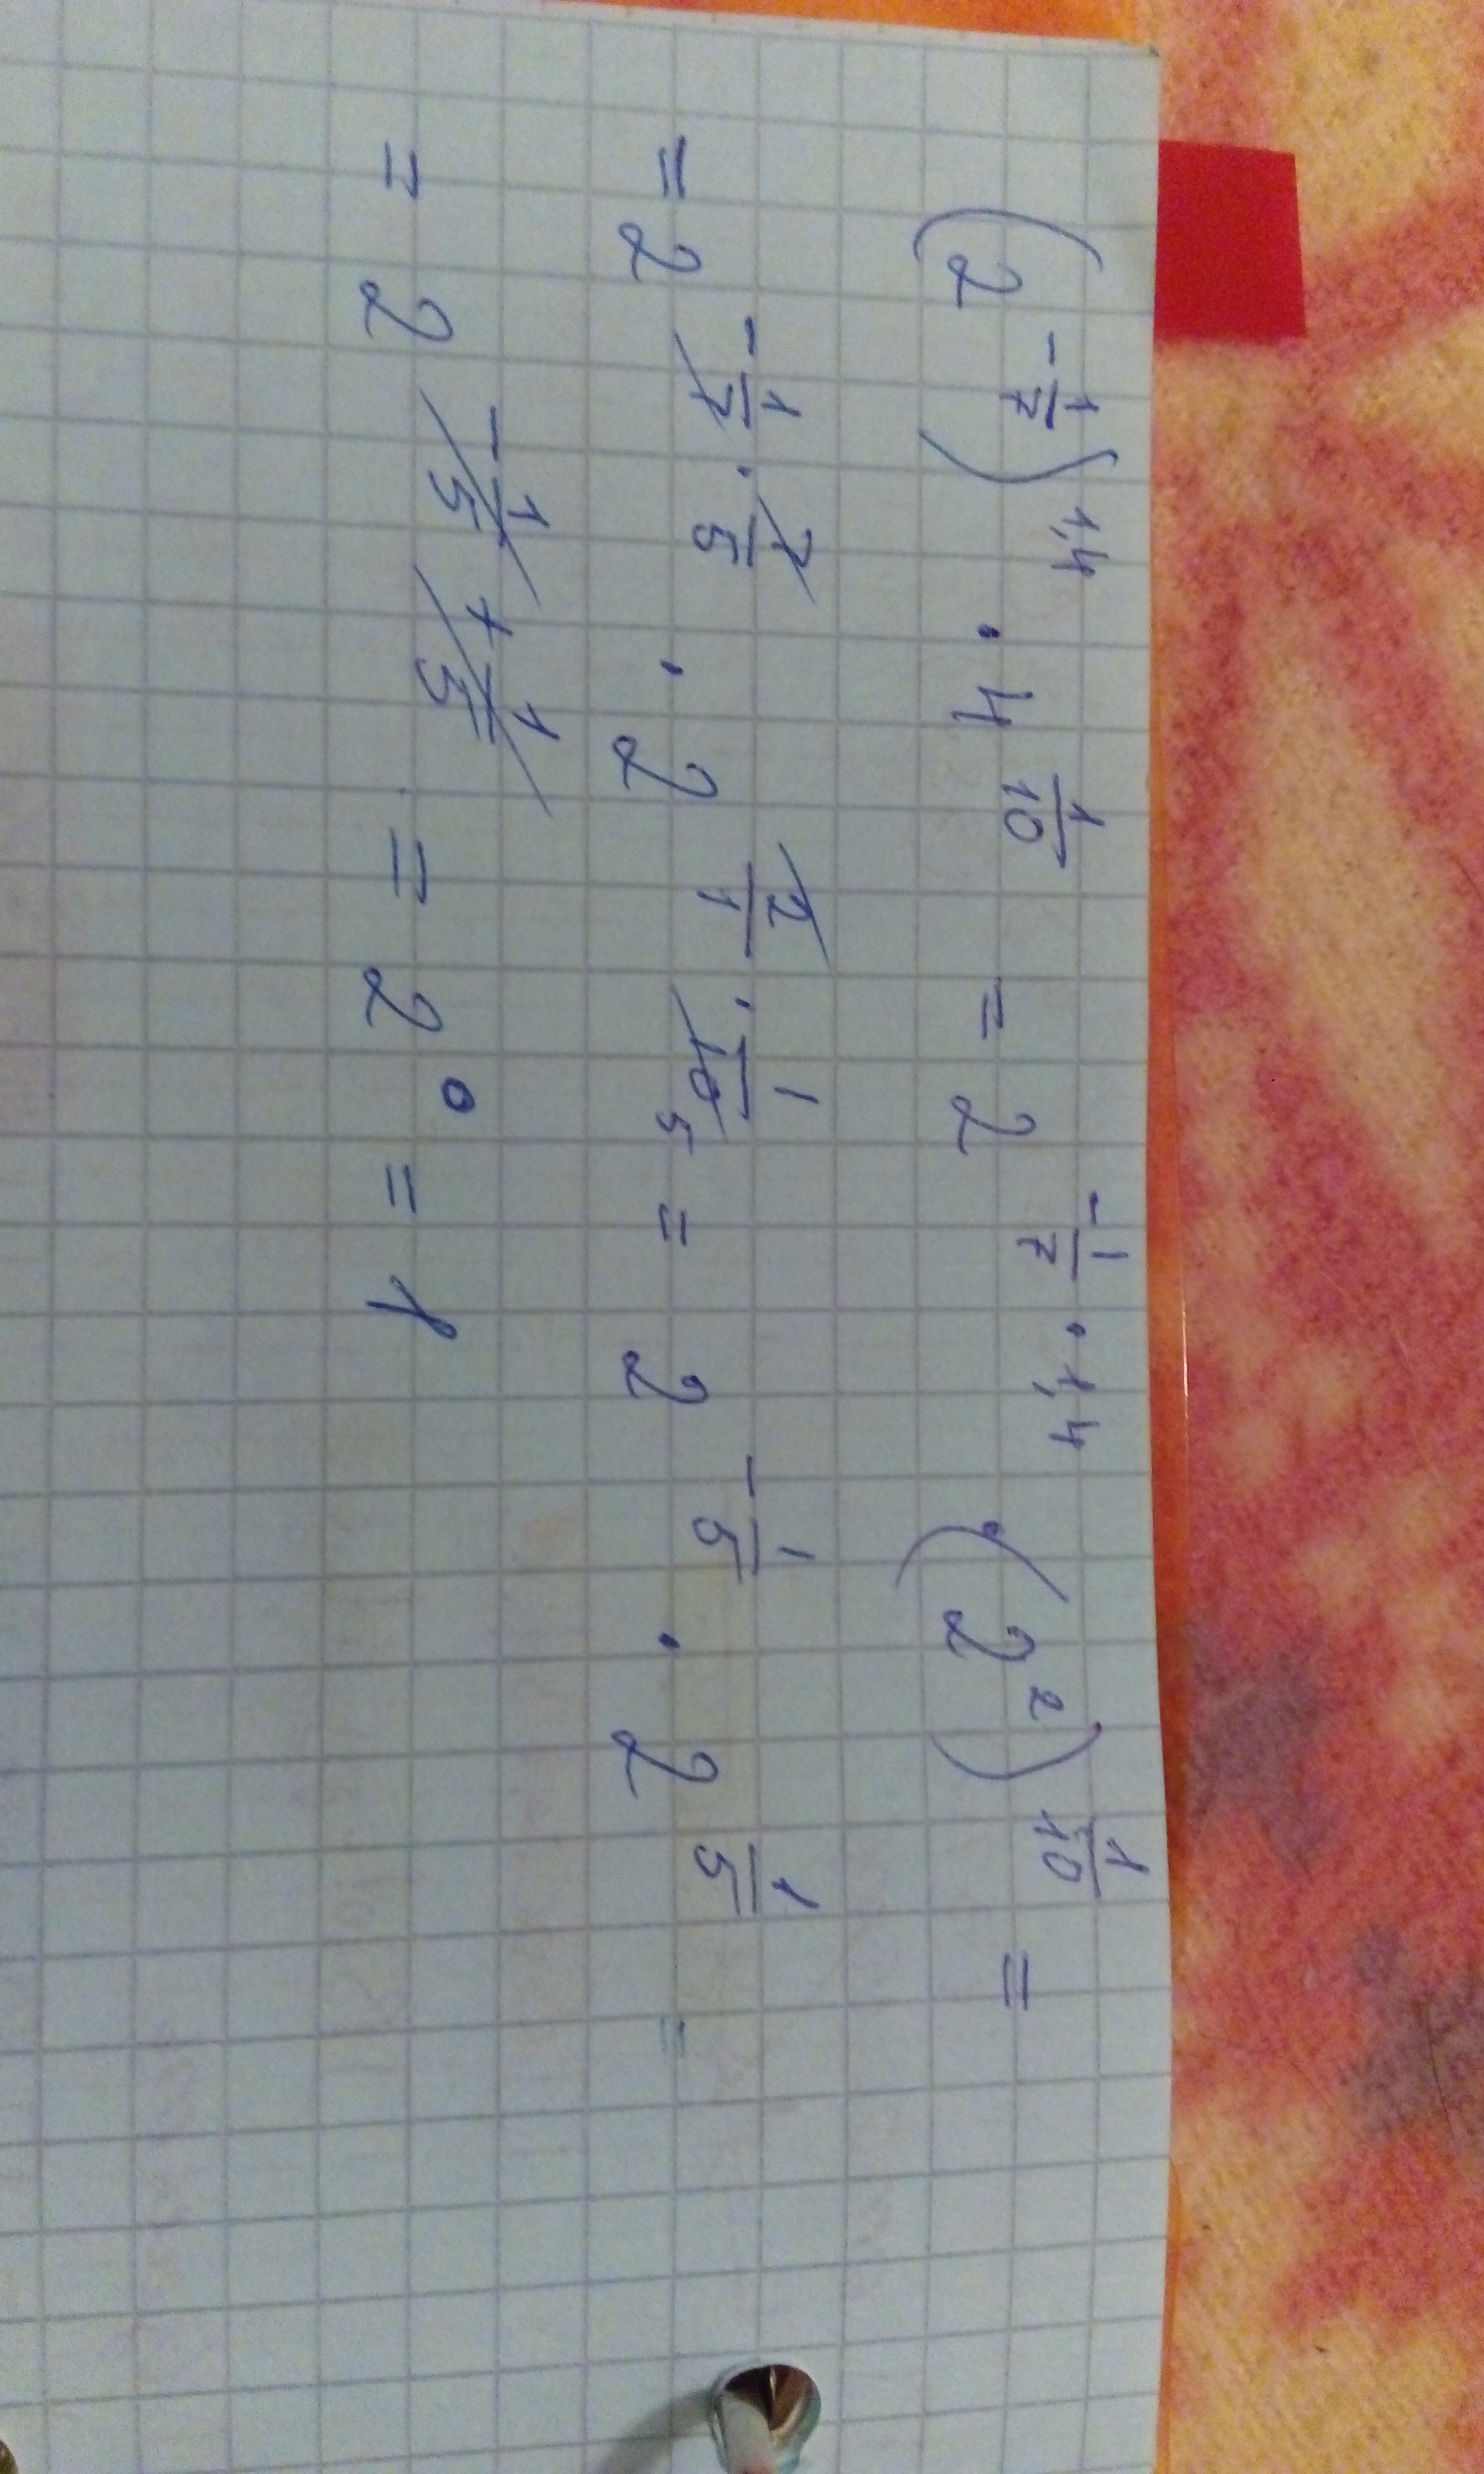 (2^{-\frac{1}{7}})^{1,4} · 4^{\frac{1}{10}} = 2^{-\frac{1}{7} · 1,4} · (2^2)^{\frac{1}{10}} =
= 2^{-\frac{1}{7} · \frac{7}{5}} · 2^{\frac{2}{1} · \frac{1}{10 5}} = 2^{-\frac{1}{5}} · 2^{\frac{1}{5}} =
= 2^{-\frac{1}{5} + \frac{1}{5}} = 2^0 = 1